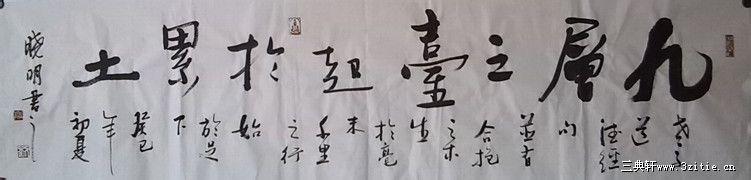 九層之臺起於累土
老子道德經句
合抱之木生於毫末千里之行始於足下
癸巳年初夏
晓明書
三典轩www.3zitie.cn